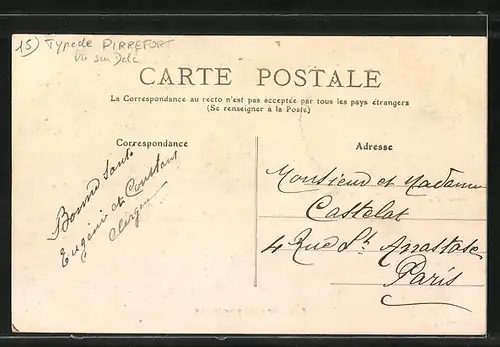 15) Type de PIRREFORT
Vu sur Delc.
CARTE POSTALE
La Correspondance au recto n'est pas acceptée par tous les pays étrangers
(Se renseigner à la Poste)
Correspondance
Bonne Santé
Eugénie et Constant
Adresse
Monsieur et Madame
Castelat
4 Rue St. Anastase
Paris